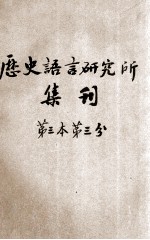 歷史語言研究所
集刊
第三本第三分